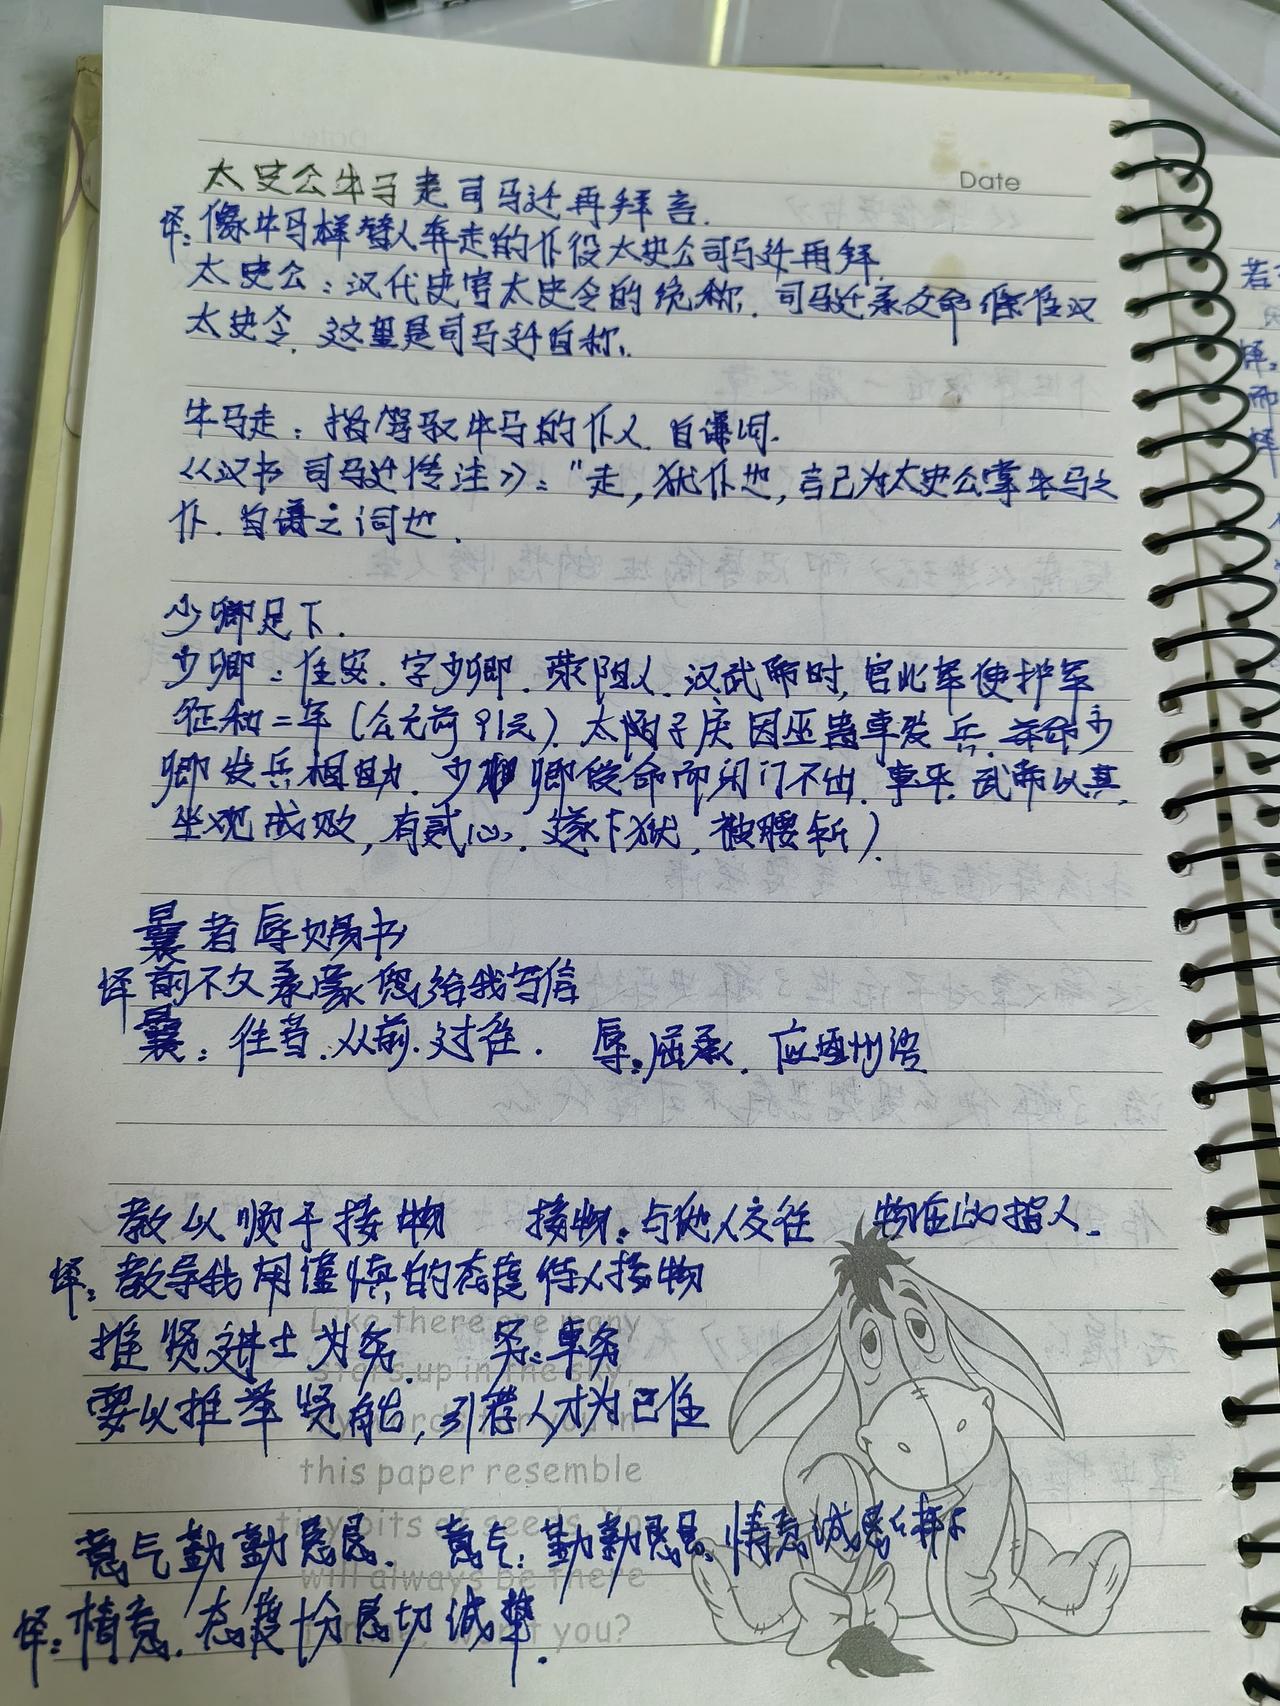 Date
太史公牛马走司马迁再拜言.
译:像牛马样替人奔走的仆役太史公司马迁再拜.
太史公:汉代史官太史令的统称.司马迁承父命继任汉
太史令.这里是司马迁自称.
牛马走:指驾驭牛马的仆人.自谦词.
《汉书 司马迁传注》:"走,犹仆也,言己为太史公掌牛马之
仆.自谦之词也.
少卿足下.
少卿:任安.字少卿.荥阳人.汉武帝时,官北军使护军
征和二年(公元前91元).太阳子戾因巫蛊事发兵.命少
卿发兵相助.少卿受命而闭门不出.事平.武帝以其
坐观成败,有贰心.遂下狱,被腰斩).
曩者辱赐书
译前不久承蒙您给我写信
曩:往昔.从前.过往. 辱:屈承.应酬语
教以顺于接物 接物:与他人交往 物在此指人.
译:教导我用谨慎的态度待人接物
推贤进士为务. 务:事务
要以推举贤能,引荐人才为己任
意气勤勤恳恳. 意气:勤勤恳恳.情意诚恳
译:情意.态度十分恳切诚挚.
Like there are many
stars up in the sky,
this paper resemble
tiny bits of seeds.
will always be there
you?